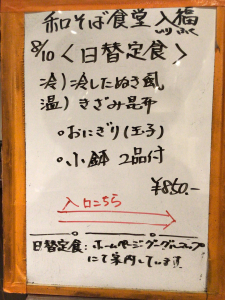 和そば食堂 入福
いり ふく
8/10 〈日替定食〉
冷)冷したぬき風
温)きざみ昆布
○おにぎり(玉子)
○小鉢 2品付
¥850.-
入口こちら
日替定食:ホームページ グーグルマップ
にて案内しています